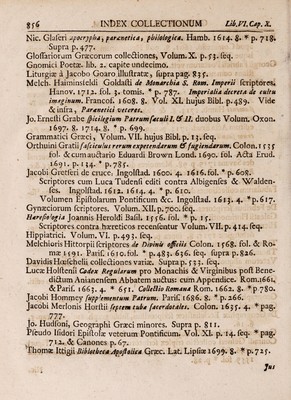 856 INDEX COLLECTIONUM Lib.VI, Cap. X.
Nic. Glaseri apocrypha, parænetica, philologica. Hamb. 1614. 8. * p. 718.
Supra p. 477.
Glossariorum Græcorum collectiones, Volum. X. p. 53. seq.
Gnomici Poetæ. lib. 2. capite undecimo.
Liturgiæ à Jacobo Goaro illustratæ, supra pag. 835.
Melch. Haiminsfeldii Goldasti de Monarchia S. Rom. Imperii scriptores.
Hanov. 1712. fol. 3. tomis. * p. 787. Imperialia decreta de cultu
imaginum. Francof. 1608. 8. Vol. XI. hujus Bibl. p. 489. Vide
& infra, Parænetici veteres.
Jo. Ernesti Grabe spicilegium Patrum sæculi I. & II. duobus Volum. Oxon.
1697. 8. 1714. 8. * p. 699.
Grammatici Græci, Volum. VII. hujus Bibl. p. 13. seq.
Orthuini Gratii fasciculus rerum expetendarum & fugiendarum. Colon. 1535
fol. & cum auctario Eduardi Brown Lond. 1690. fol. Acta Erud.
1691. p. 134. * p. 785.
Jacobi Gretseri de cruce. Ingolstad. 1600. 4. 1616. fol. * p. 608.
Scriptores cum Luca Tudensi editi contra Albigenses & Walden-
ses. Ingolstad. 1612. 1614. 4. * p. 610.
Volumen Epistolarum Pontificum &c. Ingolstad. 1613. 4. * p. 617.
Gynæciorum scriptores. Volum. XII. p. 700. seq.
Hæresiologia Joannis Heroldi Basil. 1556. fol. * p. 15.
Scriptores contra hæreticos recensentur Volum. VII. p. 414. seq.
Hippiatrici. Volum. VI. p. 493. seq.
Melchioris Hittorpii scriptores de Divinis officiis Colon. 1568. fol. & Ro-
mæ 1591. Paris. 1610. fol. * p. 483. 636. seq. supra p. 826.
Davidis Hœschelii collectiones variæ. Supra p. 533. seq.
Lucæ Holstenii Codex Regularum pro Monachis & Virginibus post Bene-
dictum Anianensem Abbatem auctus: cum Appendice. Rom. 1661.
& Paris. 1663. 4. * 651. Collectio Romana Rom. 1662. 8. * p. 780.
Jacobi Hommey supplementum Patrum. Paris. 1686. 8. * p. 266.
Jacobi Merlonis Horstii septem tubæ sacerdotales. Colon. 1635. 4. * pag.
777.
Jo. Hudsoni, Geographi Græci minores. Supra p. 811.
Pseudo Isidori Epistolæ veterum Pontificum. Vol. XI. p. 14. seq. * pag.
712. & Canones p. 67.
Thomæ Ittigii Bibliotheca Apostolica Græc. Lat. Lipsiæ 1699. 8. * p. 725.
Jus